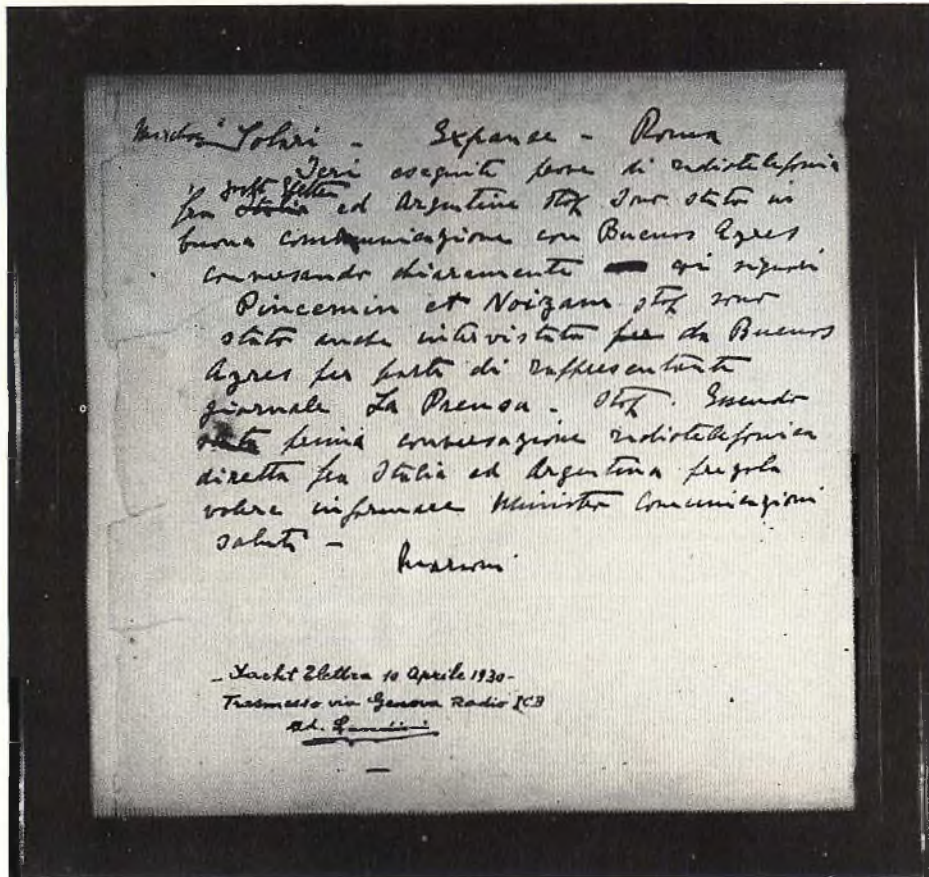 Solari - Expanse - Roma
Ieri eseguite prove di radiotelefonia
fra Yacht Elettra ed Argentina stop Sono stato in
buona communicazione con Buenos Ayres
conversando chiaramente coi signori
Pincemin et Noizam stop sono
stato anche intervistato da Buenos
Ayres per parte di rappresentante
giornale La Prensa. Stop. Essendo
prima conversazione radiotelefonica
diretta fra Italia ed Argentina pregola
volere informare Ministro Comunicazioni
saluti -
Marconi
- Yacht Elettra 10 Aprile 1930 -
Trasmesso via Genova Radio ICB
Ad. Landini